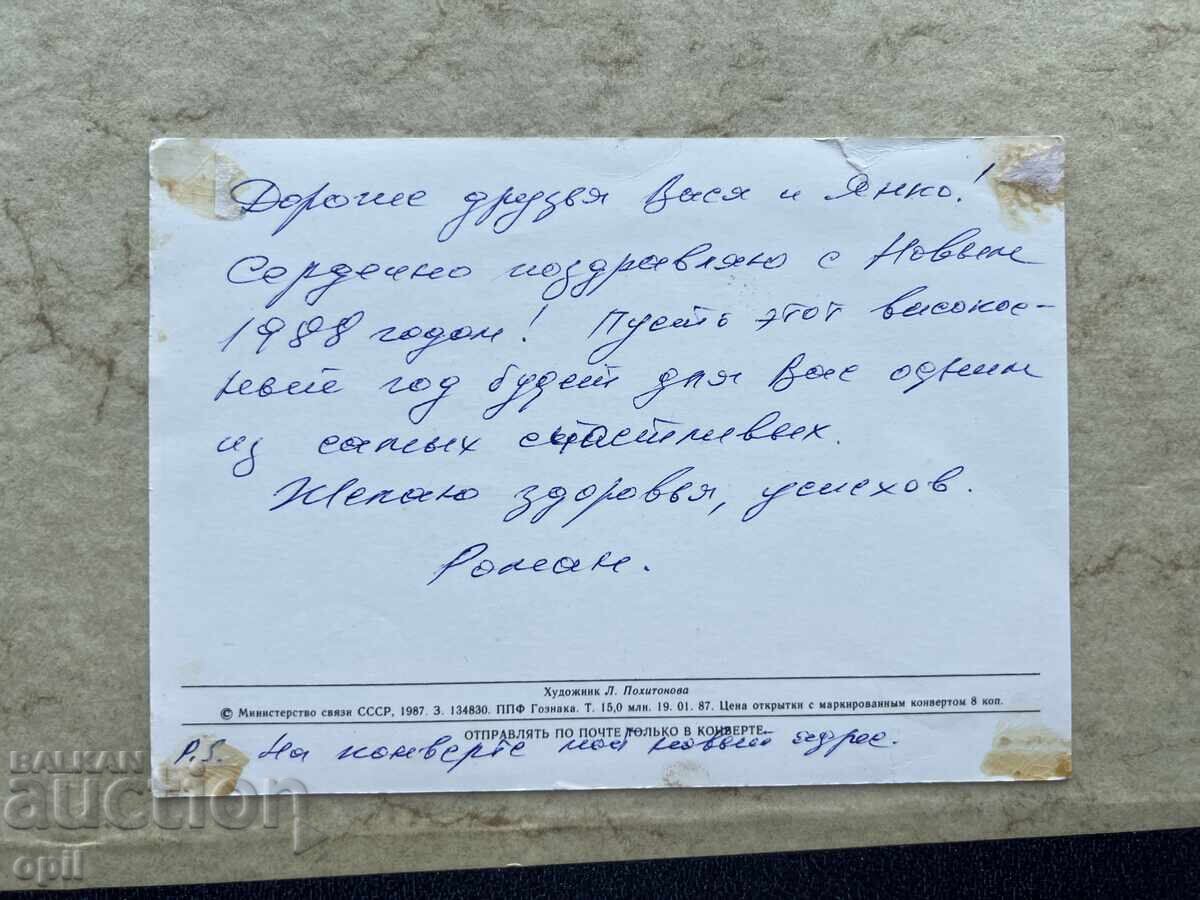 Дорогие друзья Вася и Янко!
Сердечно поздравляю с Новым
1988 годом! Пусть этот високос-
ный год будет для Вас одним
из самых счастливых.
Желаю здоровья, успехов.
Роман.
Художник Л. Похитонова
© Министерство связи СССР, 1987. З. 134830. ППФ Гознака. Т. 15,0 млн. 19. 01. 87. Цена открытки с маркированным конвертом 8 коп.
ОТПРАВЛЯТЬ ПО ПОЧТЕ ТОЛЬКО В КОНВЕРТЕ.
P.S. На конверте мой новый адрес.
BALKAN
auction
opil